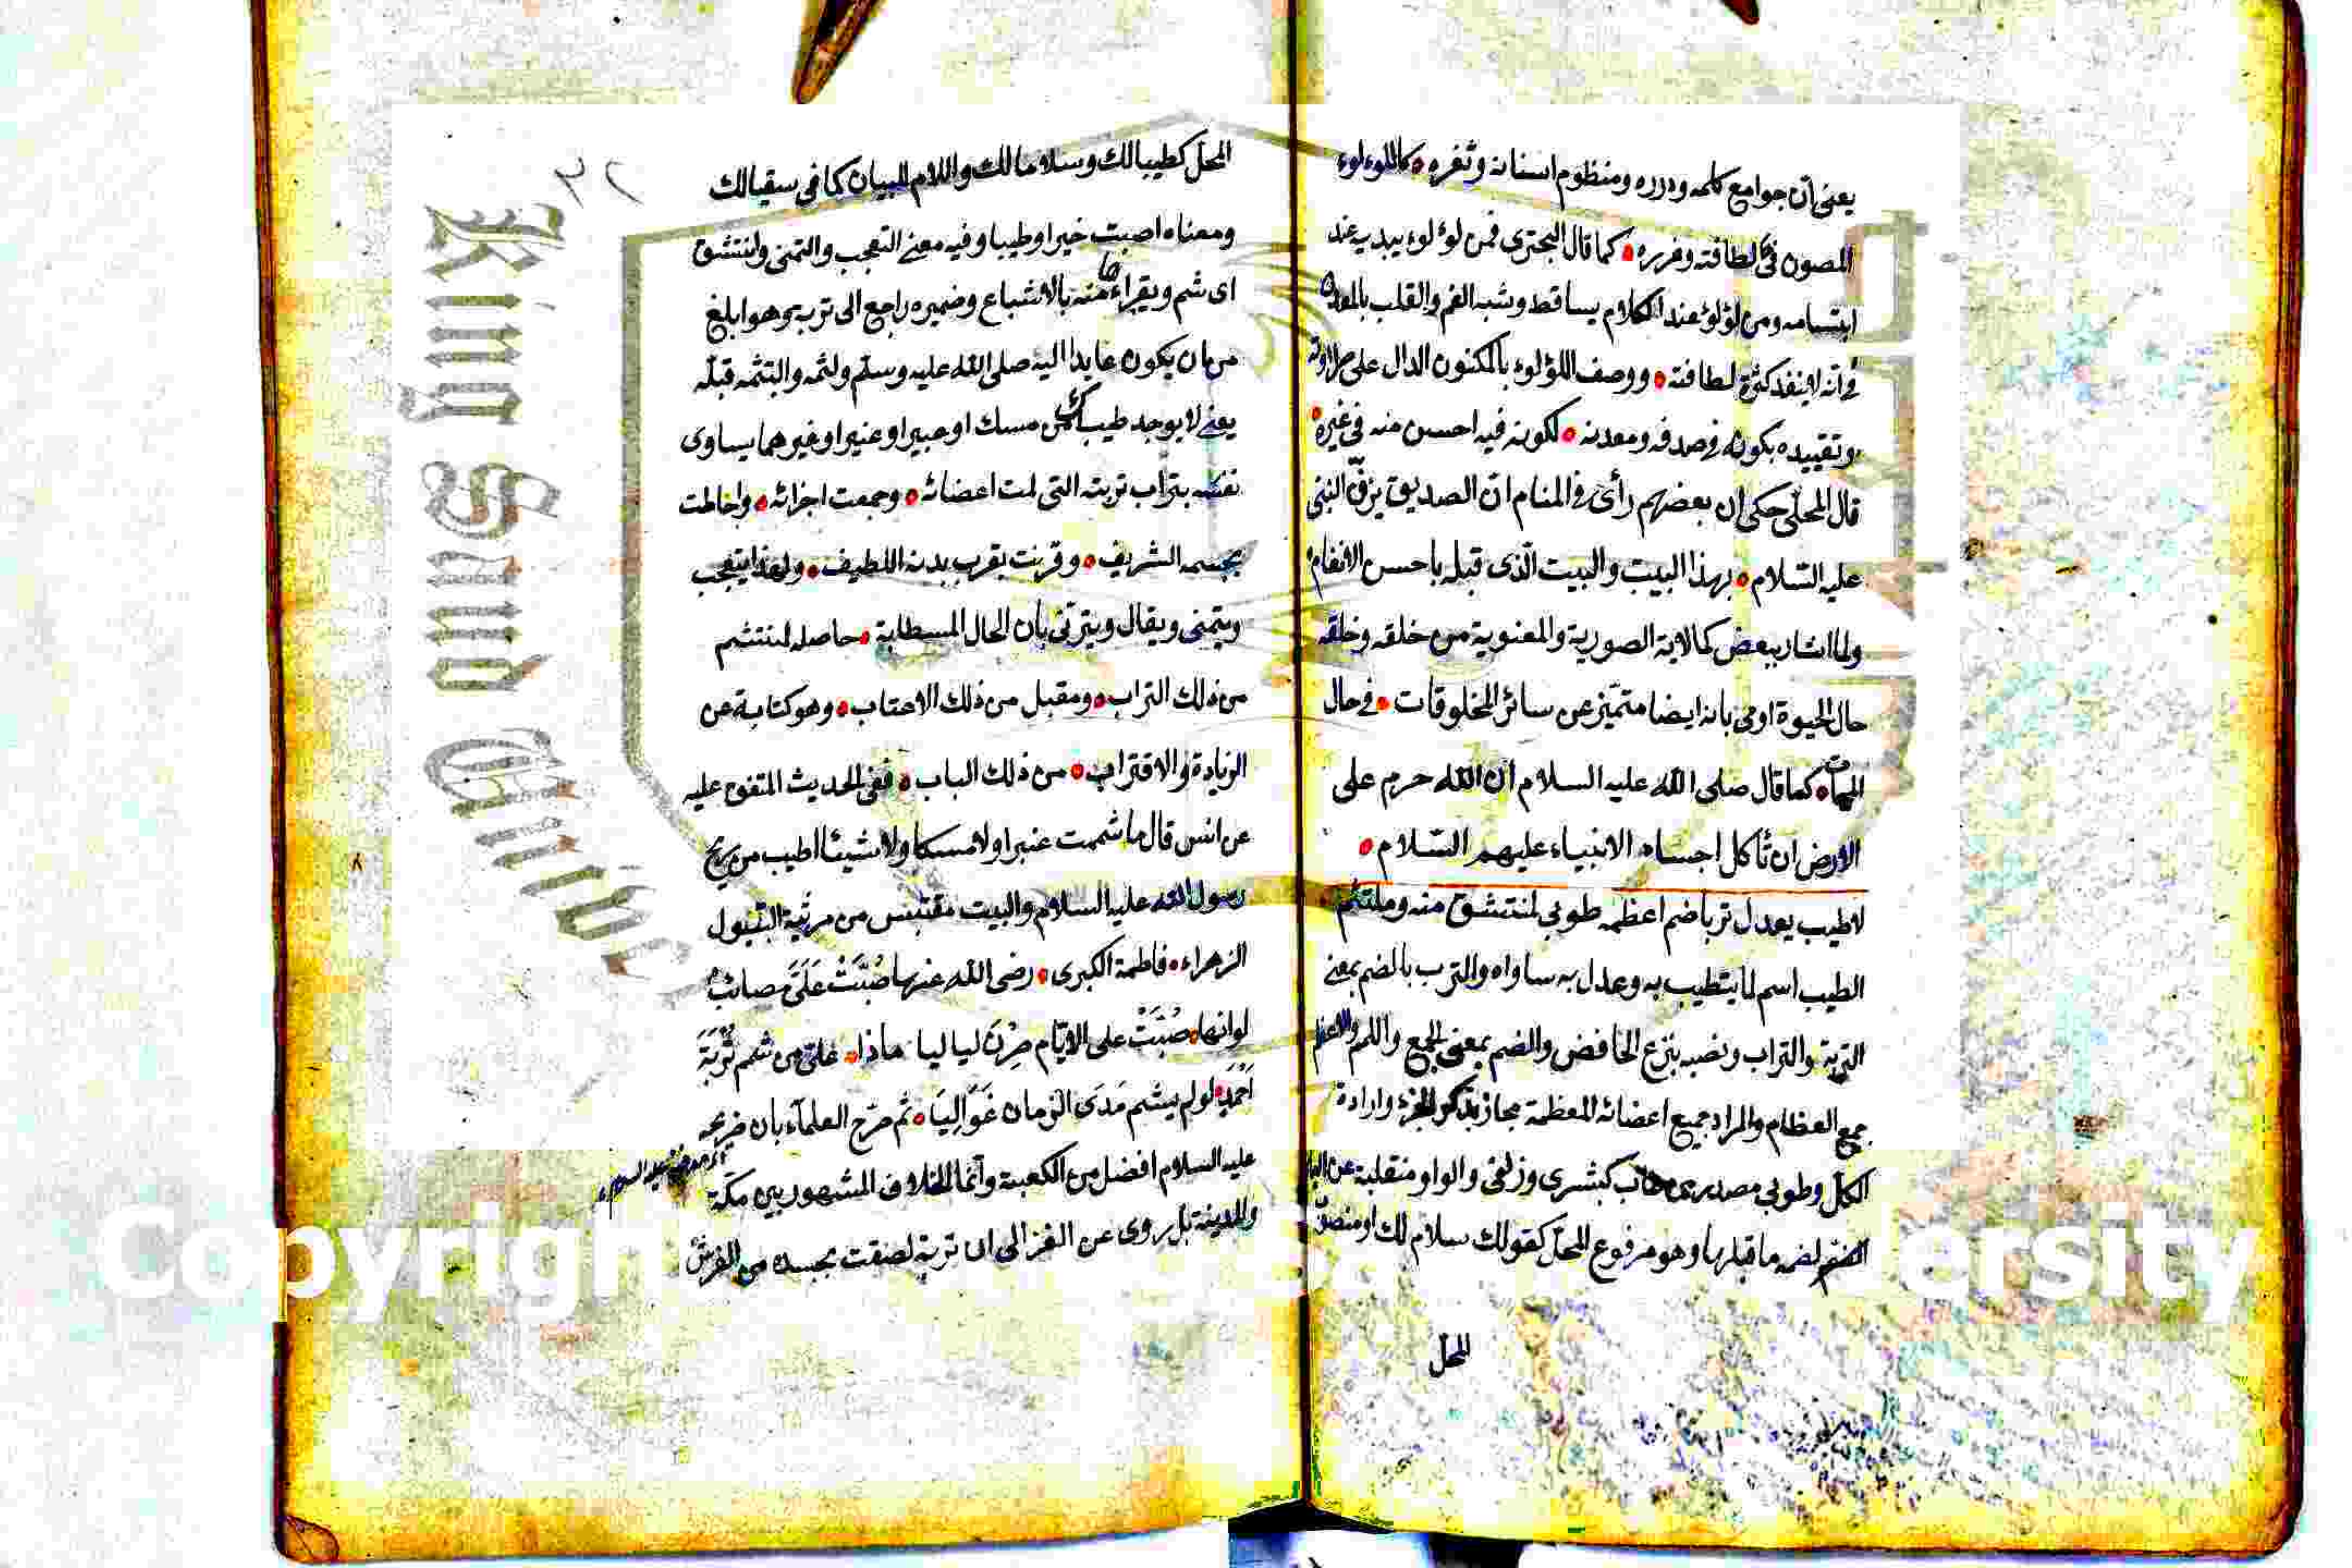 يعنى ان جوامع كلمه ودرره ومنظوم اسنانه وثغره كاللوءلوء
المصون فى لطافته وغرره كما قال البحترى فمن لوءلوء يبديه عند
ابتسامه ومن لؤلؤ عند الكلام يساقط وشبه الفم والقلب بالمعدن
فى انه لا ينفد كثرة لطافته ووصف اللؤلوء بالمكنون الدال على طراوته
وتقييده بكونه فى صدفه ومعدنه لكونه فيه احسن منه فى غيره
قال المحلى حكى ان بعضهم رأى فى المنام ان الصديق يزف النبى
عليه السلام بهذا البيت والبيت الذى قبله باحسن الانغام
ولما اشار ببعض كمالاته الصورية والمعنوية من خلقه وخلقه
حال الحيوة اومى بانه ايضا متميز عن سائر المخلوقات فى حال
الممات كما قال صلى الله عليه السلام ان الله حرم على
الارض ان تأكل اجساد الانبياء عليهم السلام
لا طيب يعدل تربا ضم اعظمه طوبى لمنتشق منه وملتثم
الطيب اسم لما يتطيب به وعدل به ساواه والترب بالضم بمعنى
التربة والتراب ونصبه بنزع الخافض والضم بمعنى الجمع واللم والاعظم
جمع العظام والمراد جميع اعضائه المعظمة مجاز بذكر الجزء وارادة
الكل وطوبى مصدر من طاب كبشرى وزلفى والواو منقلبة عن الياء
لضمه ما قبلها وهو مرفوع المحل كقولك سلام لك او منصوب
المحل
٣٢
المحل كطيبا لك وسلاما لك واللام للبيان كما فى سقيا لك
ومعناه اصبت خيرا وطيبا وفيه معنى التعجب والتمنى ولنتشق
اى شم ويقراء هاء منه بالاشباع وضميره راجع الى تربه وهو ابلغ
من ان يكون عايدا اليه صلى الله عليه وسلم ولثمه والتثمه قبله
يعنى لا يوجد طيب من مسك او عبير او عنبر او غيرهما يساوى
نفسه بتراب تربته التى لمت اعضائه وجمعت اجزائه واخالطت
بجسمه الشريف وقرنت بقرب بدنه اللطيف ولهذا يتعجب
ويتمنى ويقال ويترنى بأن الحال المسطابة حاصله لمنتشم
من ذلك التراب ومقبل من ذلك الاعتاب وهو كناية عن
الزيادة والاقتراب من ذلك الباب ففى الحديث المتفق عليه
عن انس قال ما شممت عنبرا ولا مسكا ولا شيئا اطيب من ريح
رسول الله عليه السلام والبيت مقتبس من مرثية البتول
الزهراء فاطمة الكبرى رضى الله عنها صُبَّتْ عَلَىَّ مصائبُ
لوانها صُبَّتْ على الايّام صِرْنَ لياليا ماذا على من شم تُرْبَةَ
اَحْمَدٍ لو لم يشم مَدَى الزمان غَوَالِيَا ثم صرح العلماء بان ضريحه
عليه السلام افضل من الكعبة وانما الخلاف المشهور بين مكة
والمدينة بل روى عن الغزالى ان تربة لصقت بجسده من الفرش
King Saud Univer
Copyrigh ersity